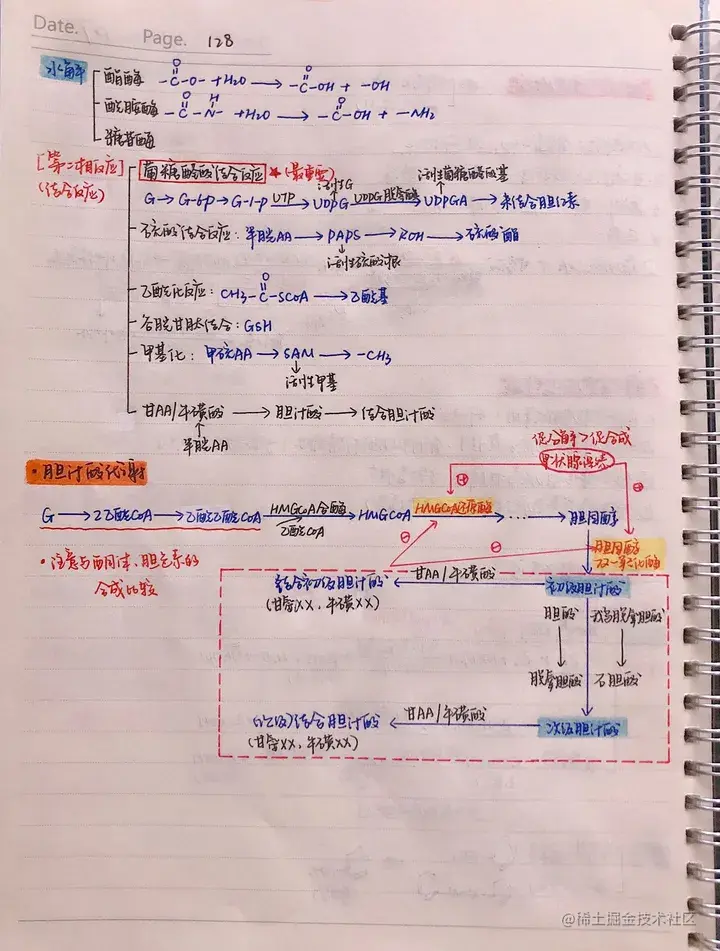 Date.
Page. 128
水解
酯酶 -C(=O)-O- +H2O → -C(=O)-OH + -OH
酰胺酶 -C(=O)-N(H)- +H2O → -C(=O)-OH + -NH2
糖苷酶
[第二相反应]
(结合反应)
葡糖醛酸结合反应 ★(最重要)
活性G
活性葡糖醛酸基
G → G-6-p → G-1-p UTP→ UDPG UDPG脱氢酶→ UDPGA → 未结合胆红素
硫酸结合反应: 半胱AA → PAPS → ROH → 硫酸酯
活性硫酸根
乙酰化反应: CH3-C(=O)-SCoA → 乙酰基
谷胱甘肽结合: GSH
甲基化: 甲硫AA → SAM → -CH3
活性甲基
甘AA/牛磺酸 → 胆汁酸 → 结合胆汁酸
半胱AA
促分解>促合成
甲状腺激素
·胆汁酸代谢
⊕ ⊕
G → 2乙酰CoA → 乙酰乙酰CoA HMGCoA合酶→ HMGCoA HMGCoA还原酶→ … → 胆固醇
乙酰COA
⊖ ⊖
胆固醇
7α-羟化酶
·注意与酮体、胆色素的
合成比较
结合初级胆汁酸 ← 甘AA/牛磺酸 初级胆汁酸
(甘氨XX、牛磺XX)
胆酸 鹅脱氧胆酸
脱氧胆酸 石胆酸
(次级)结合胆汁酸 ← 甘AA/牛磺酸 次级胆汁酸
(甘氨XX、牛磺XX)
@稀土掘金技术社区